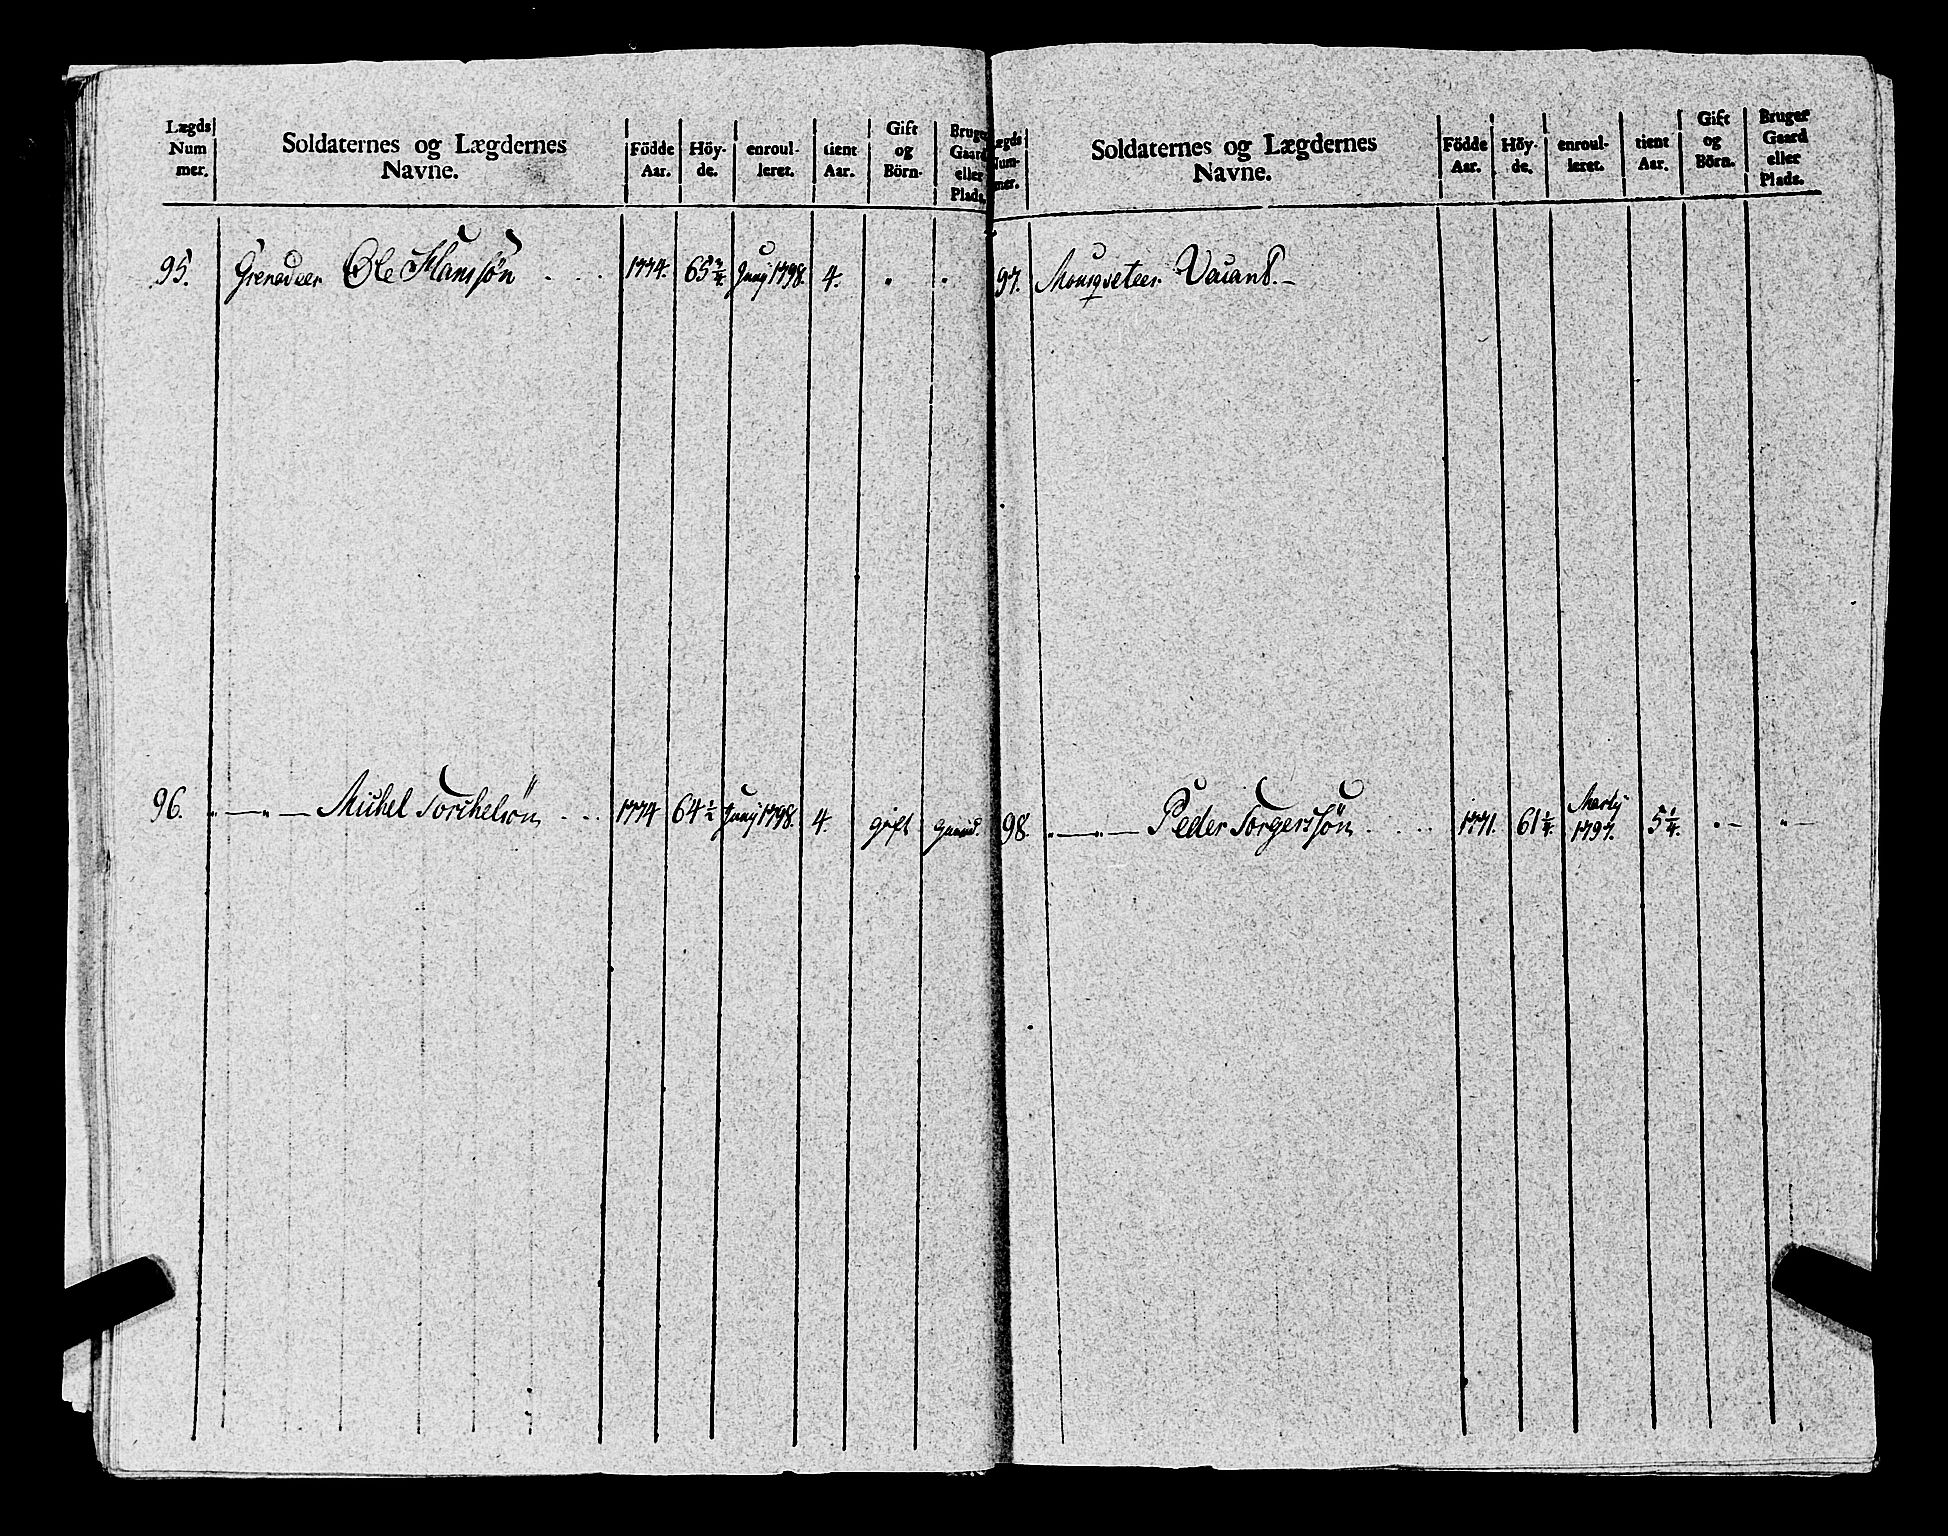 Lægds Num mer. | Soldaternes og Lægdernes Navne. | Födde Aar. | Höy- de. | enroul- leret. | tient Aar. | Gift og Börn. | Bruger Gaard eller Plads.
95. Grenadeer Ole Hanssøn . . . 1774. 65 3/4. Junÿ 1798. 4. . .
96. „ — „ — Michel Torchelsön . . . 1774 64 1/2 Junÿ 1798. 4. gift Gaard.
Lægds Num- mer. | Soldaternes og Lægdernes Navne. | Födde Aar. | Höy- de. | enroul- leret. | tient Aar. | Gift og Börn. | Bruger Gaard eller Plads.
97. Mousqveteer Vacant. —
98. „ — „ — Peder Torgerssön . . . 1771. 61 1/4. Martÿ 1797. 5 1/4. . — „ —